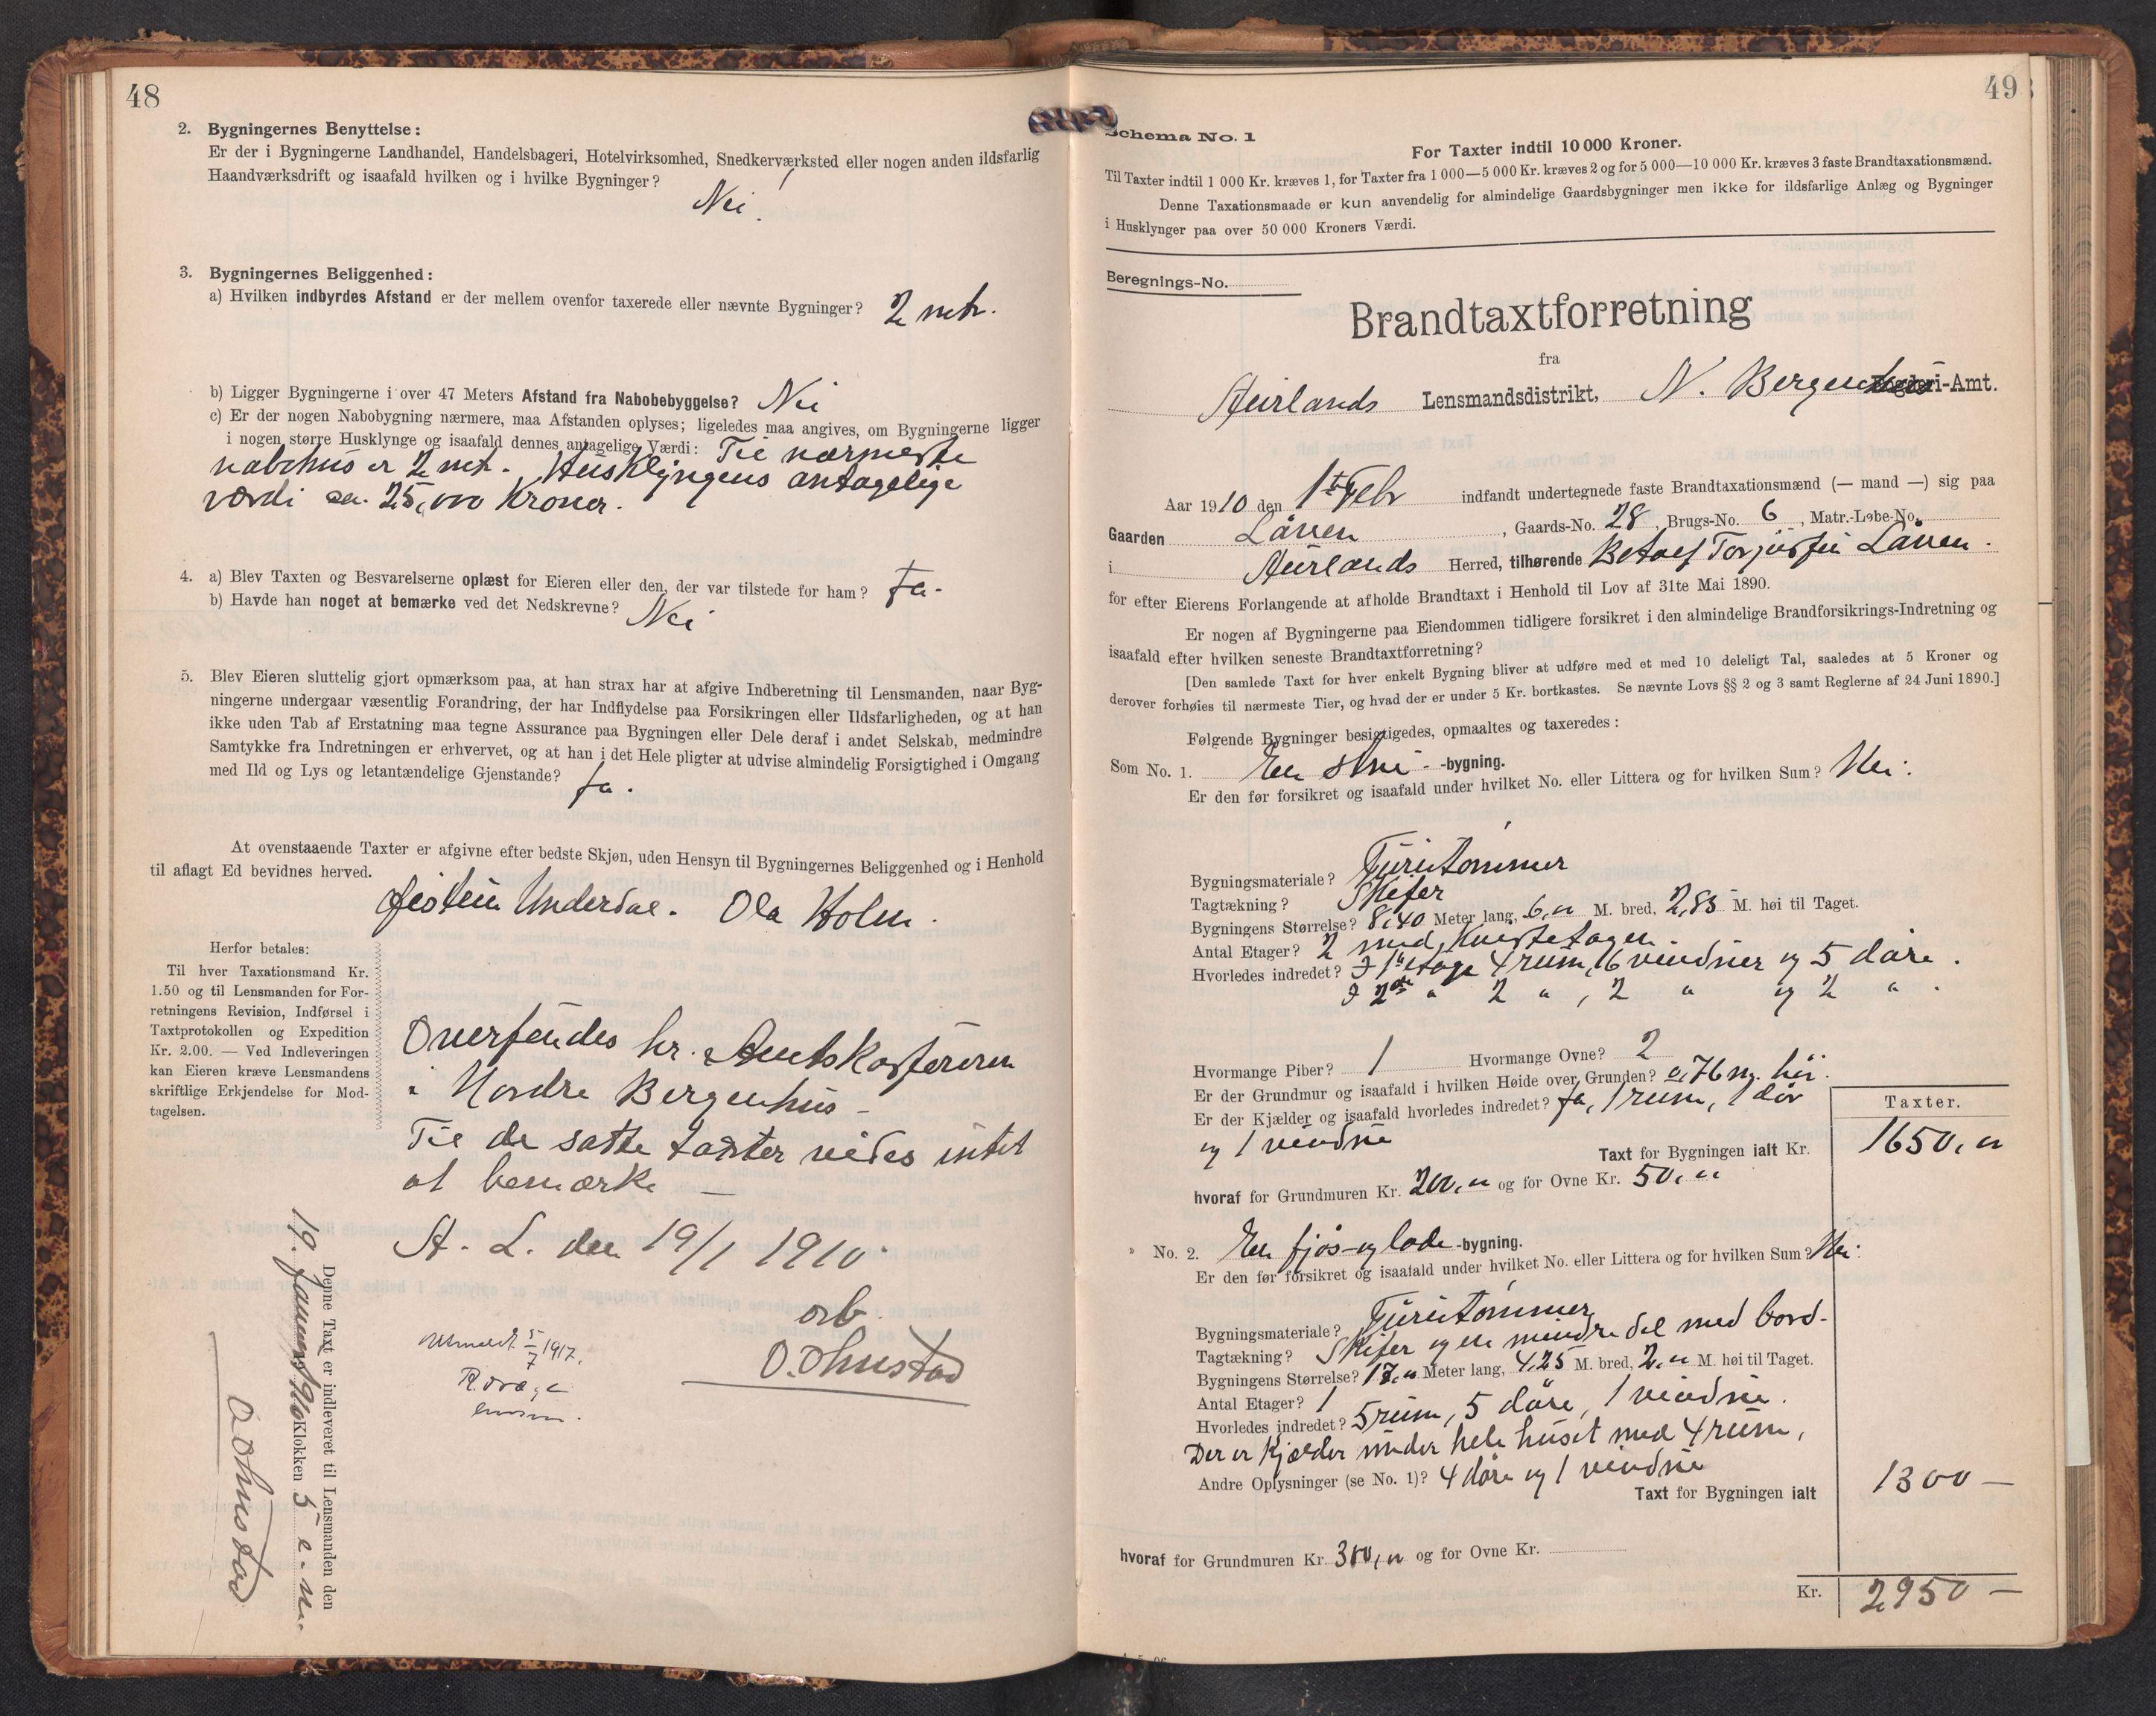 48
2. Bygningernes Benyttelse:
Er der i Bygningerne Landhandel, Handelsbageri, Hotelvirksomhed, Snedkerværksted eller nogen anden ildsfarlig
Haandværksdrift og isaafald hvilken og i hvilke Bygninger?
Nei.
3. Bygningernes Beliggenhed:
a) Hvilken indbyrdes Afstand er der mellem ovenfor taxerede eller nævnte Bygninger? 2 mtr.
b) Ligger Bygningerne i over 47 Meters Afstand fra Nabobebyggelse? Nei
c) Er der nogen Nabobygning nærmere, maa Afstanden oplyses; ligeledes maa angives, om Bygningerne ligger
i nogen større Husklynge og isaafald dennes antagelige Værdi: Til nærmeste
nabohus er 2 mtr. Husklyngens antagelige
værdi ca. 25,000 Kroner.
4. a) Blev Taxten og Besvarelserne oplæst for Eieren eller den, der var tilstede for ham? Ja.
b) Havde han noget at bemærke ved det Nedskrevne? Nei
5. Blev Eieren sluttelig gjort opmærksom paa, at han strax har at afgive Indberetning til Lensmanden, naar Byg-
ningerne undergaar væsentlig Forandring, der har Indflydelse paa Forsikringen eller Ildsfarligheden, og at han
ikke uden Tab af Erstatning maa tegne Assurance paa Bygningen eller Dele deraf i andet Selskab, medmindre
Samtykke fra Indretningen er erhvervet, og at han i det Hele pligter at udvise almindelig Forsigtighed i Omgang
med Ild og Lys og letantændelige Gjenstande? Ja.
At ovenstaaende Taxter er afgivne efter bedste Skjøn, uden Hensyn til Bygningernes Beliggenhed og i Henhold
til aflagt Ed bevidnes herved.
Øistein Underdal. Ola Holm.
Herfor betales:
Til hver Taxationsmand Kr.
1.50 og til Lensmanden for For-
retningens Revision, Indførsel i
Taxtprotokollen og Expedition
Kr. 2.00. — Ved Indleveringen
kan Eieren kræve Lensmandens
skriftlige Erkjendelse for Mod-
tagelsen.
Oversendes hr. Amtskassereren
i Nordre Bergenhus –
Til de satte taxter vides intet
at bemærke –
A. L. den 19/1 1910
orb.
O. Ohnstad
Utmeldt 5/7 1917.
Denne Taxt er indleveret til Lensmanden den
19. Januar 1910 Klokken 5 e. m.
O Ohnstad
49
Schema No. 1
For Taxter indtil 10 000 Kroner.
Til Taxter indtil 1 000 Kr. kræves 1, for Taxter fra 1 000—5 000 Kr. kræves 2 og for 5 000—10 000 Kr. kræves 3 faste Brandtaxationsmænd.
Denne Taxationsmaade er kun anvendelig for almindelige Gaardsbygninger men ikke for ildsfarlige Anlæg og Bygninger
i Husklynger paa over 50 000 Kroners Værdi.
Beregnings-No.
Brandtaxtforretning
fra
Aurlands Lensmandsdistrikt, N. Bergenhus Fogderi-Amt.
Aar 1910 den 1ste Febr indfandt undertegnede faste Brandtaxationsmænd (— mand —) sig paa
Gaarden Låven, Gaards-No. 28, Brugs-No. 6, Matr.-Løbe-No.
i Aurlands Herred, tilhørende Botolf Torjussen Låven.
for efter Eierens Forlangende at afholde Brandtaxt i Henhold til Lov af 31te Mai 1890.
Er nogen af Bygningerne paa Eiendommen tidligere forsikret i den almindelige Brandforsikrings-Indretning og
isaafald efter hvilken seneste Brandtaxtforretning?
[Den samlede Taxt for hver enkelt Bygning bliver at udføre med et med 10 deleligt Tal, saaledes at 5 Kroner og
derover forhøies til nærmeste Tier, og hvad der er under 5 Kr. bortkastes. Se nævnte Lovs §§ 2 og 3 samt Reglerne af 24 Juni 1890.]
Følgende Bygninger besigtigedes, opmaaltes og taxeredes:
Som No. 1. En stue -bygning.
Er den før forsikret og isaafald under hvilket No. eller Littera og for hvilken Sum? Nei.
Bygningsmateriale? Furutømmer
Tagtækning? Skifer
Bygningens Størrelse? 8,40 Meter lang, 6,00 M. bred, 2,85 M. høi til Taget.
Antal Etager? 2 med Knestetagen.
Hvorledes indredet? I 1ste etage 4 rum, 6 vinduer og 5 døre.
I 2den " 2 ", 2 " og 2 ".
Hvormange Piber? 1 Hvormange Ovne? 2
Er der Grundmur og isaafald i hvilken Høide over Grunden? 0,76 m. høi.
Er der Kjælder og isaafald hvorledes indredet? Ja, 1 rum, 1 dør
og 1 vindue
Taxter.
Taxt for Bygningen ialt Kr. 1650,00
hvoraf for Grundmuren Kr. 200,00 og for Ovne Kr. 50,00
" No. 2. En fjøs- og lade -bygning.
Er den før forsikret og isaafald under hvilket No. eller Littera og for hvilken Sum? Nei.
Bygningsmateriale? Furutømmer
Tagtækning? Skifer og en mindre del med bord.
Bygningens Størrelse? 17,00 Meter lang, 4,25 M. bred, 2,00 M. høi til Taget.
Antal Etager? 1
Hvorledes indredet? 5 rum, 5 døre, 1 vindue.
Der er Kjælder under hele huset med 4 rum,
Andre Oplysninger (se No. 1)? 4 døre og 1 vindue
Taxt for Bygningen ialt 1300 —
hvoraf for Grundmuren Kr. 300,00 og for Ovne Kr.
Kr. 2950 —